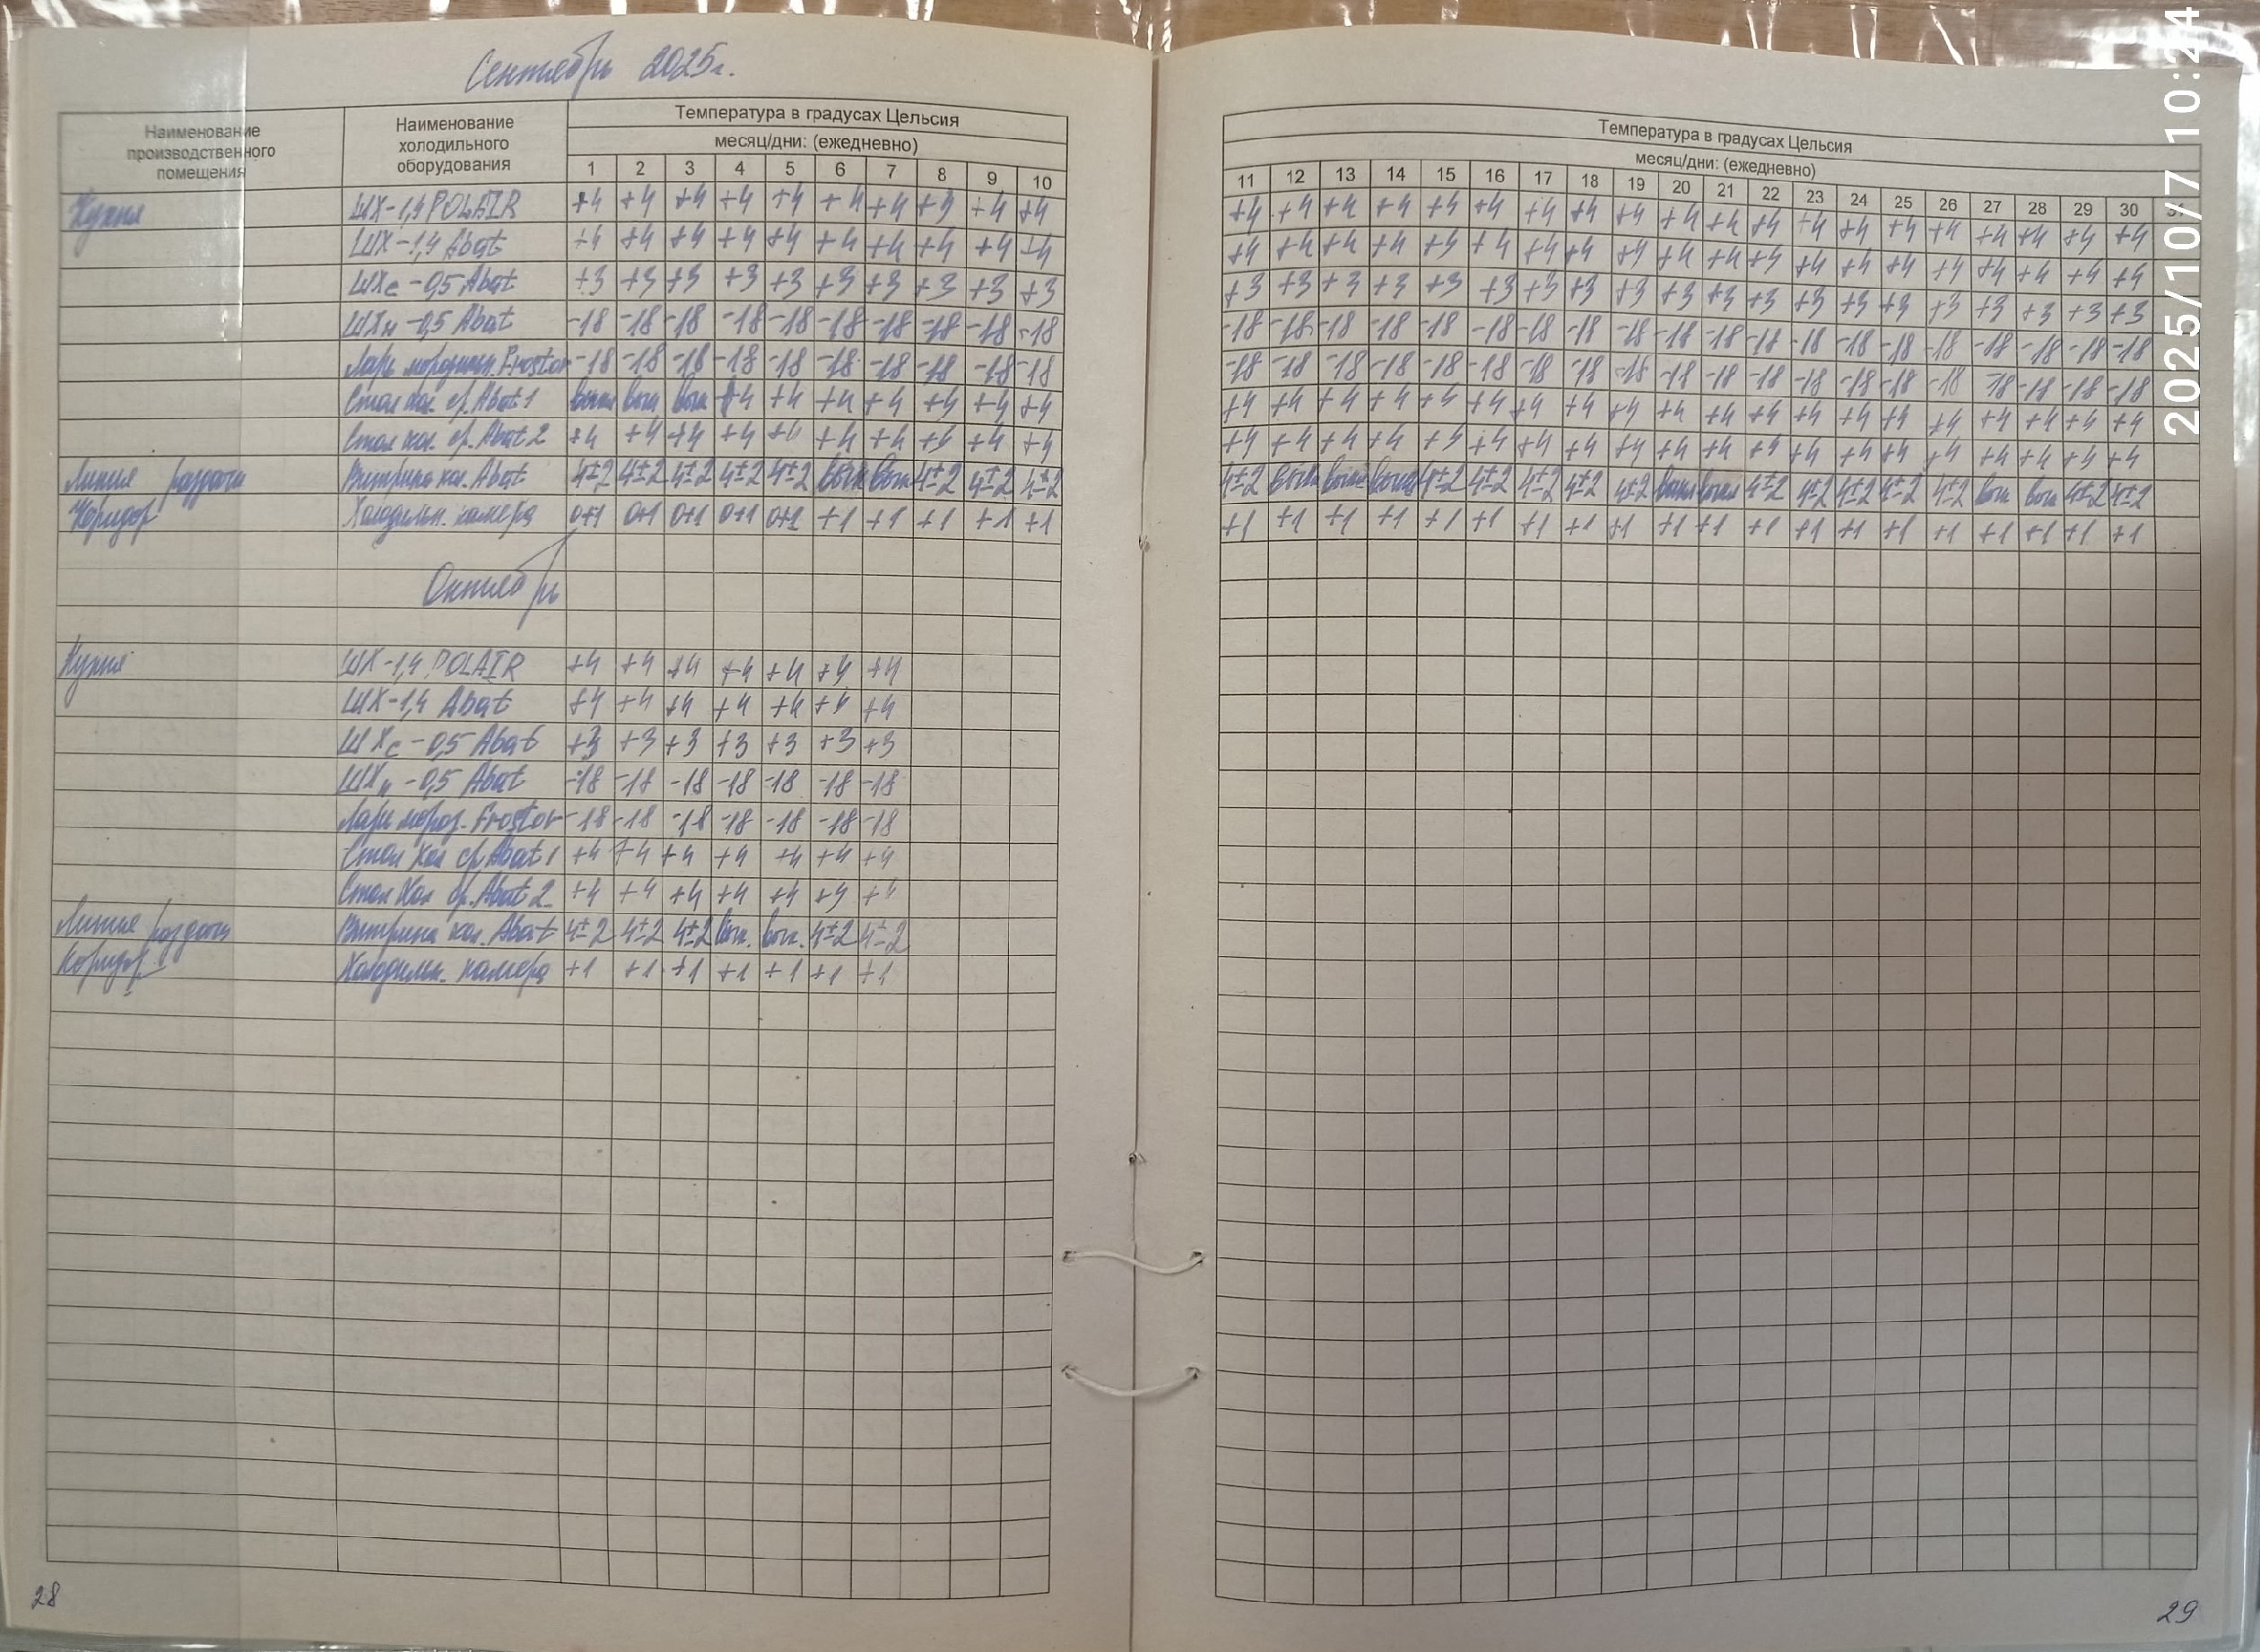 Сентябрь 2025г.
Наименование производственного помещения
Наименование холодильного оборудования
Температура в градусах Цельсия
месяц/дни: (ежедневно)
1 2 3 4 5 6 7 8 9 10
Кухня ШХ-1,4 POLAIR +4 +4 +4 +4 +4 +4 +4 +4 +4
ШХ-1,4 Abat +4 +4 +4 +4 +4 +4 +4 +4 +4 +4
ШХс-0,5 Abat +3 +3 +3 +3 +3 +3 +3 +3 +3 +3
ШХн-0,5 Abat -18 -18 -18 -18 -18 -18 -18 -18 -18 -18
Ларь морозильн. Frostor -18 -18 -18 -18 -18 -18 -18 -18 -18 -18
Стол хол. ср. Abat 1 выкл вык вык +4 +4 +4 +4 +4 +4 +4
Стол хол. ср. Abat 2 +4 +4 +4 +4 +4 +4 +4 +4 +4 +4
Линия раздачи Витрина хол. Abat 4±2 4±2 4±2 4±2 4±2 вык вык 4±2 4±2 4±2
Коридор Холодильн. камера 0+1 0+1 0+1 0+1 0+1 +1 +1 +1 +1 +1
Октябрь
Кухня ШХ-1,4 POLAIR +4 +4 +4 +4 +4 +4 +4
ШХ-1,4 Abat +4 +4 +4 +4 +4 +4 +4
ШХс-0,5 Abat +3 +3 +3 +3 +3 +3 +3
ШХн-0,5 Abat -18 -18 -18 -18 -18 -18 -18
Ларь мороз. Frostor -18 -18 -18 -18 -18 -18 -18
Стол Хол ср. Abat 1 +4 +4 +4 +4 +4 +4 +4
Стол Хол ср. Abat 2 +4 +4 +4 +4 +4 +4 +4
Линия раздачи Витрина хол. Abat 4±2 4±2 4±2 вык. вык. 4±2 4±2
Коридор Холодильн. камера +1 +1 +1 +1 +1 +1 +1
28
Температура в градусах Цельсия
месяц/дни: (ежедневно)
11 12 13 14 15 16 17 18 19 20 21 22 23 24 25 26 27 28 29 30 31
+4 +4 +4 +4 +4 +4 +4 +4 +4 +4 +4 +4 +4 +4 +4 +4 +4 +4 +4 +4
+4 +4 +4 +4 +4 +4 +4 +4 +4 +4 +4 +4 +4 +4 +4 +4 +4 +4 +4 +4
+3 +3 +3 +3 +3 +3 +3 +3 +3 +3 +3 +3 +3 +3 +3 +3 +3 +3 +3 +3
-18 -18 -18 -18 -18 -18 -18 -18 -18 -18 -18 -18 -18 -18 -18 -18 -18 -18 -18 -18
-18 -18 -18 -18 -18 -18 -18 -18 -18 -18 -18 -18 -18 -18 -18 -18 -18 -18 -18 -18
+4 +4 +4 +4 +4 +4 +4 +4 +4 +4 +4 +4 +4 +4 +4 +4 +4 +4 +4 +4
+4 +4 +4 +4 +4 +4 +4 +4 +4 +4 +4 +4 +4 +4 +4 +4 +4 +4 +4 +4
4±2 выкл выкл выкл 4±2 4±2 4±2 4±2 4±2 выкл выкл 4±2 4±2 4±2 4±2 4±2 вык вык 4±2 4±2
+1 +1 +1 +1 +1 +1 +1 +1 +1 +1 +1 +1 +1 +1 +1 +1 +1 +1 +1 +1
29
2025/10/7 10:24